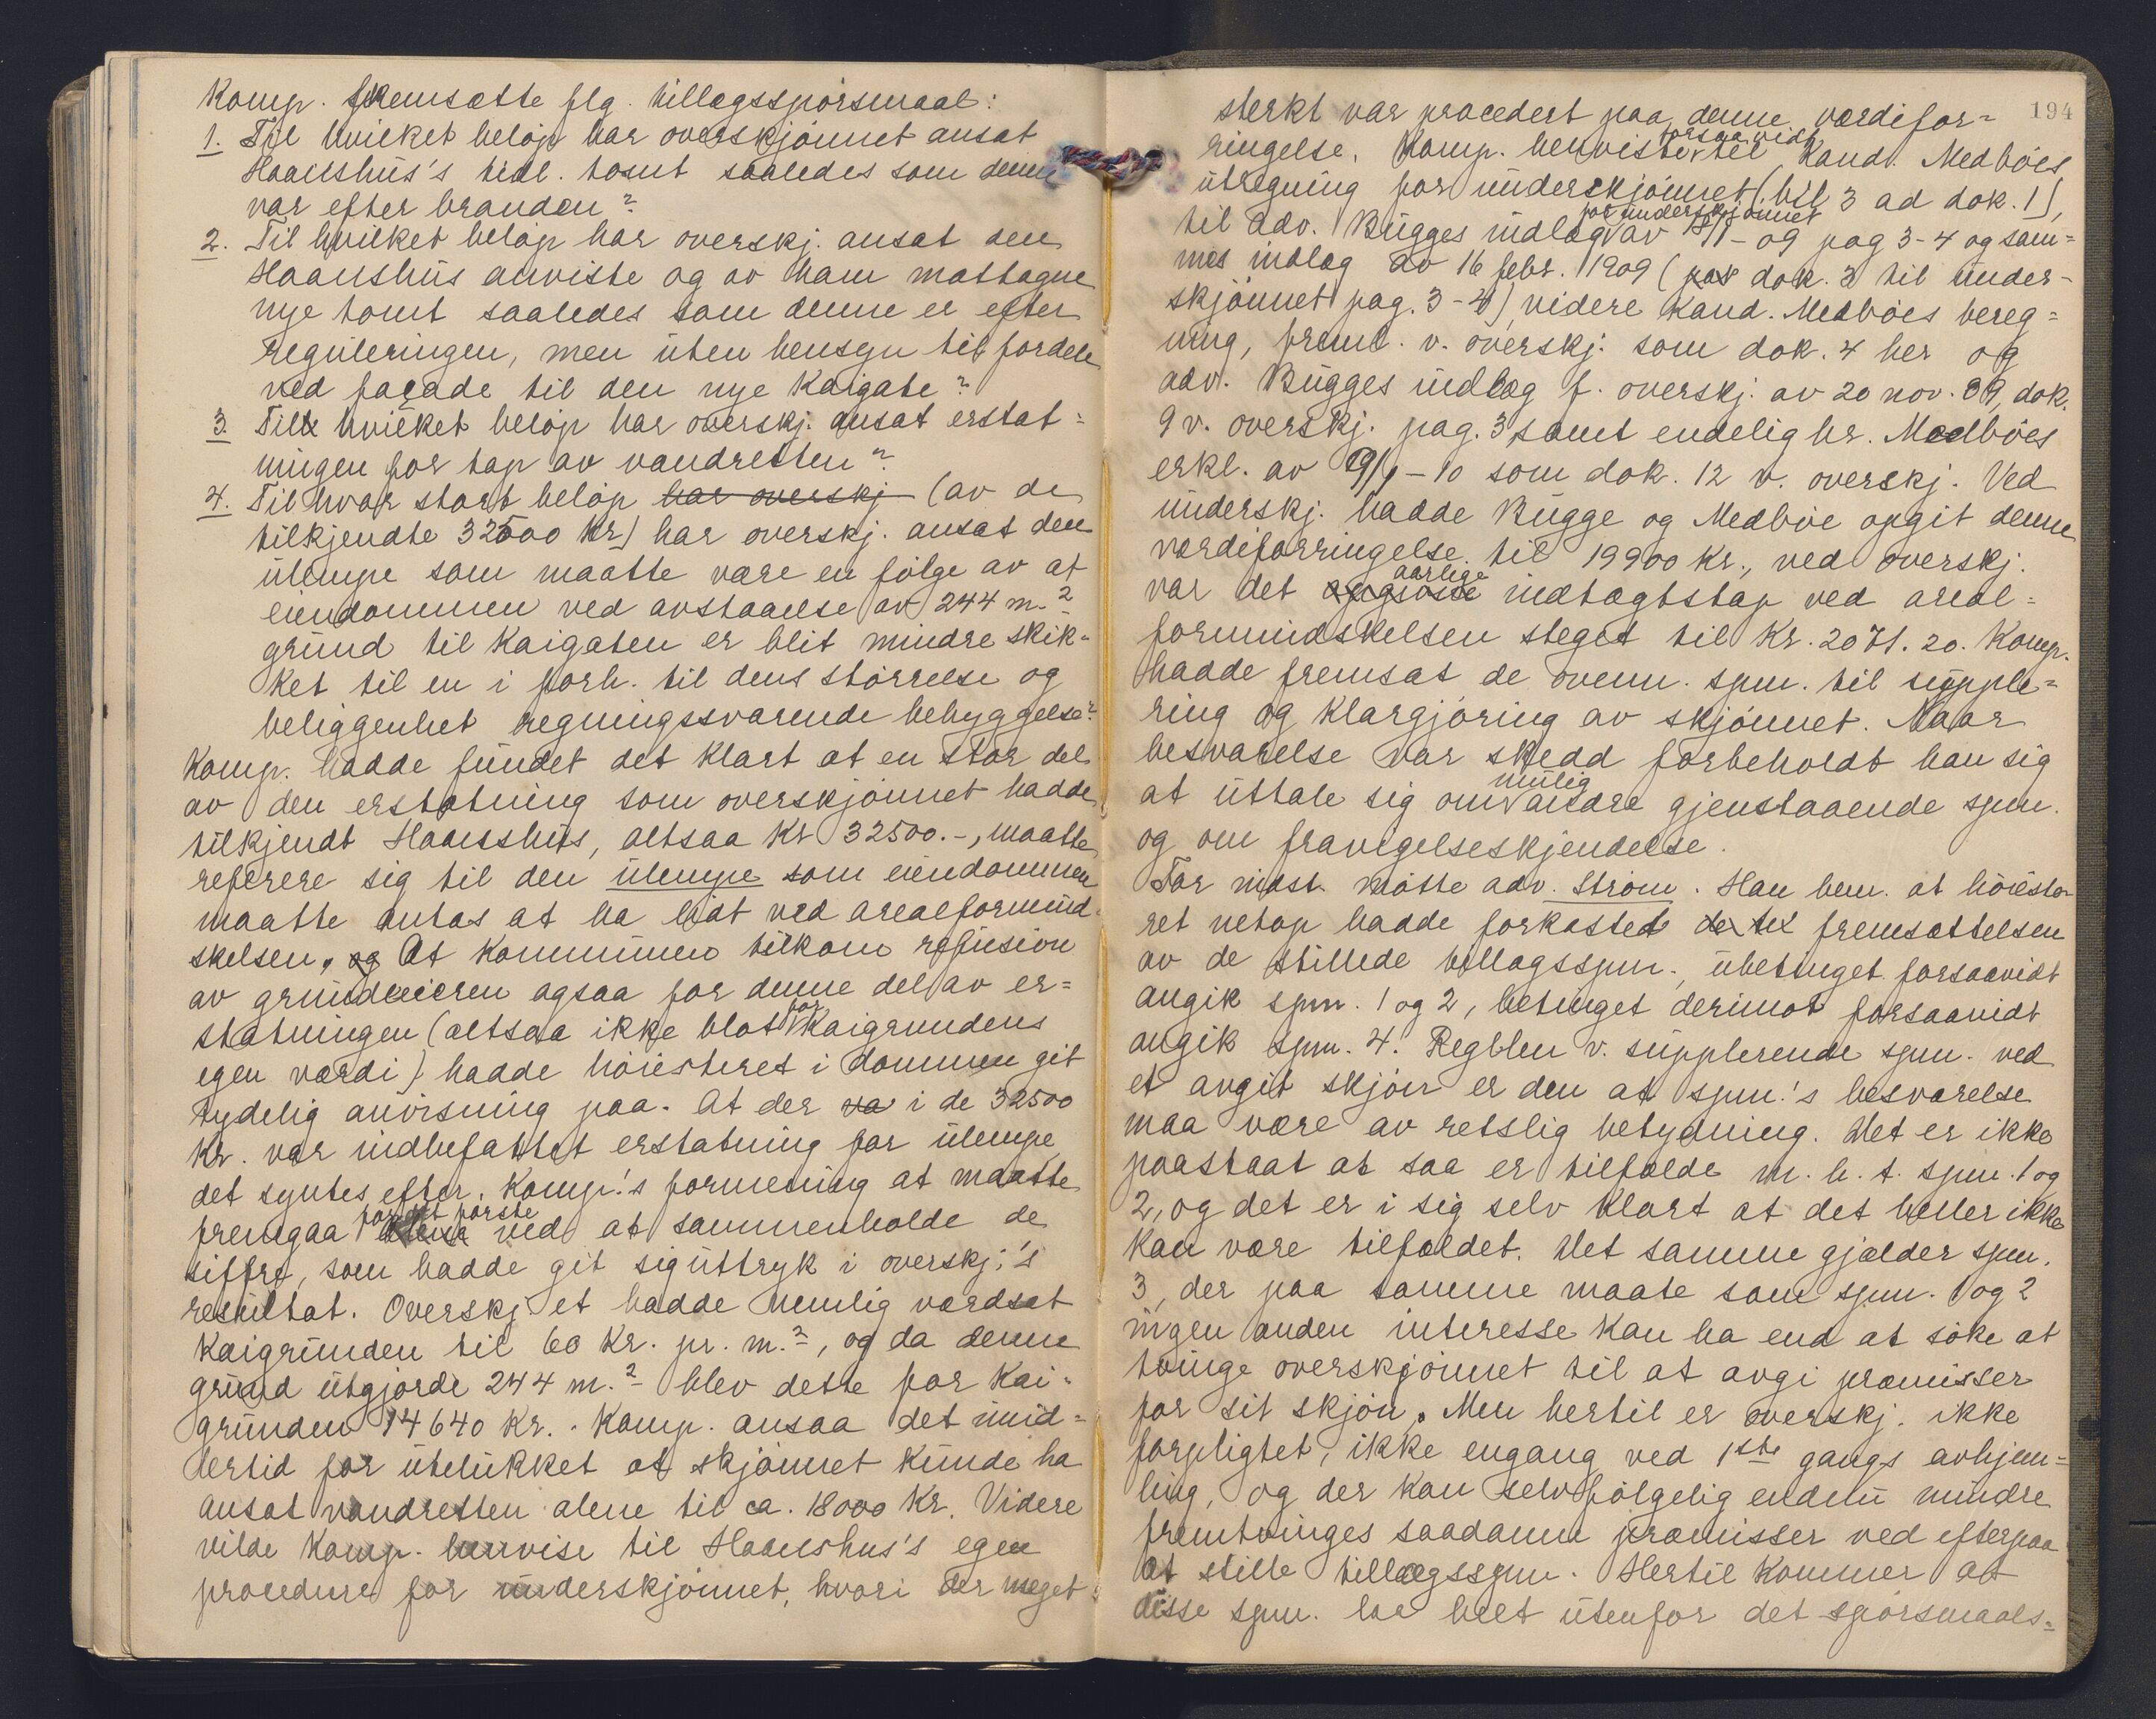 Komp. fremsatte flg. tillægsspörsmaal:
1. Til hvilket belöp har overskjönnet ansat
Haanshus's tidl. tomt saaledes som denne
var efter branden?
2. Til hvilket belöp har overskj. ansat den
Haanshus anviste og av ham mottagne
nye tomt saaledes som denne er efter
reguleringen, men uten hensyn til fordele
ved façade til den nye Kaigate?
3. Till hvilket belöp har overskj. ansat erstat=
ningen for tap av vandretten?
4. Til hvor stort belöp har overskj (av de
tilkjendte 32500 Kr) har overskj. ansat den
ulempe som maatte være en fölge av at
eiendommen ved avstaaelse av 244 m.2
grund til Kaigaten er blit mindre skik=
ket til en i forh. til dens störrelse og
beliggenhet regningssvarende bebyggelse?
Komp. hadde fundet det klart at en stor del
av den erstatning som overskjönnet hadde
tilkjendt Haanshus, altsaa Kr 32500.-, maatte
referere sig til den ulempe som eiendommen
maatte antas at ha lidt ved arealformind=
skelsen, og At Kommunen tilkom refusion
av grundeieren ogsaa for denne del av er=
statningen (altsaa ikke blot for Kaigrundens
egen værdi) hadde höiesteret i dommen git
tydelig anvisning paa. At der va i de 32500
Kr. var indbefattet erstatning for ulempe
det syntes efter Komp.'s formening at maatte
fremgaa for det förste ved at sammenholde de
siffre, som hadde git sig uttryk i overskj.'s
resultat. Overskj et hadde nemlig værdsat
Kaigrunden til 60 Kr. pr. m.2, og da denne
grund utgjorde 244 m.2 blev dette for Kai=
grunden 14640 Kr. Komp. ansaa det imid=
lertid for utelukket at skjönnet kunde ha
ansat vandretten alene til ca. 18000 Kr. Videre
vilde Komp. henvise til Haanshus's egen
procedure for underskjönnet, hvori der meget
194
sterkt var procedert paa denne værdifor=
ringelse. Komp. henviste forsaavidt til Kand. Medböes
utregning for underskjönnet (bil 3 ad dok. 1),
til adv. Bugges indlæg for underskjönnet av og pag 3-4 og sam=
mes indlæg av 16 febr. 1909 (dok. 3 til under=
skjönnet pag. 3-4) videre Kand. Medböes bereg=
ning, freml. v. overskj. som dok. 4 her og
adv. Bugges indlæg f. overskj. av 20 nov. 09, dok.
9 v. overskj. pag. 3, samt endelig hr. Medböes
erkl. av 19/1-10 som dok. 12 v. overskj. Ved
underskj. hadde Bugge og Medböe opgit denne
værdiforringelse til 19900 Kr., ved overskj.
var det aarlige indtægtstap ved areal=
formindskelsen steget til Kr. 2071.20. Komp.
hadde fremsat de ovenn. spm. til supple=
ring og klargjöring av skjönnet. Naar
besvarelse var skedd forbeholdt han sig
at uttale sig om mulig andre gjenstaaende spm.
og om fravigelseskjendelse.
For ridst. mötte adv. Ström. Han bem. at höieste=
ret netop hadde forkastet fremsættelsen
av de stillede tillægsspm., ubetinget forsaavidt
angik spm. 1 og 2, betinget derimot forsaavidt
angik spm. 4. Reglen v. supplerende spm. ved
et avgit skjön er den at spm.'s besvarelse
maa være av retslig betydning. Det er ikke
paastaat at saa er tilfælde m. h. t. spm. 1 og
2, og det er i sig selv klart at det heller ikke
kan være tilfældet. Det samme gjælder spm.
3, der paa samme maate som spm. 1 og 2
ingen anden interesse kan ha end at söke at
tvinge overskjönnet til at avgi præmisser
for sit skjön. Men hertil er overskj. ikke
forpligtet, ikke engang ved 1ste gangs avhjem=
ling, og der kan selvfölgelig endnu mindre
fremtvinges saadanne præmisser ved efterpaa
at stille tillægsspm. Hertil kommer at
disse spm. laa helt utenfor det spörsmaals=